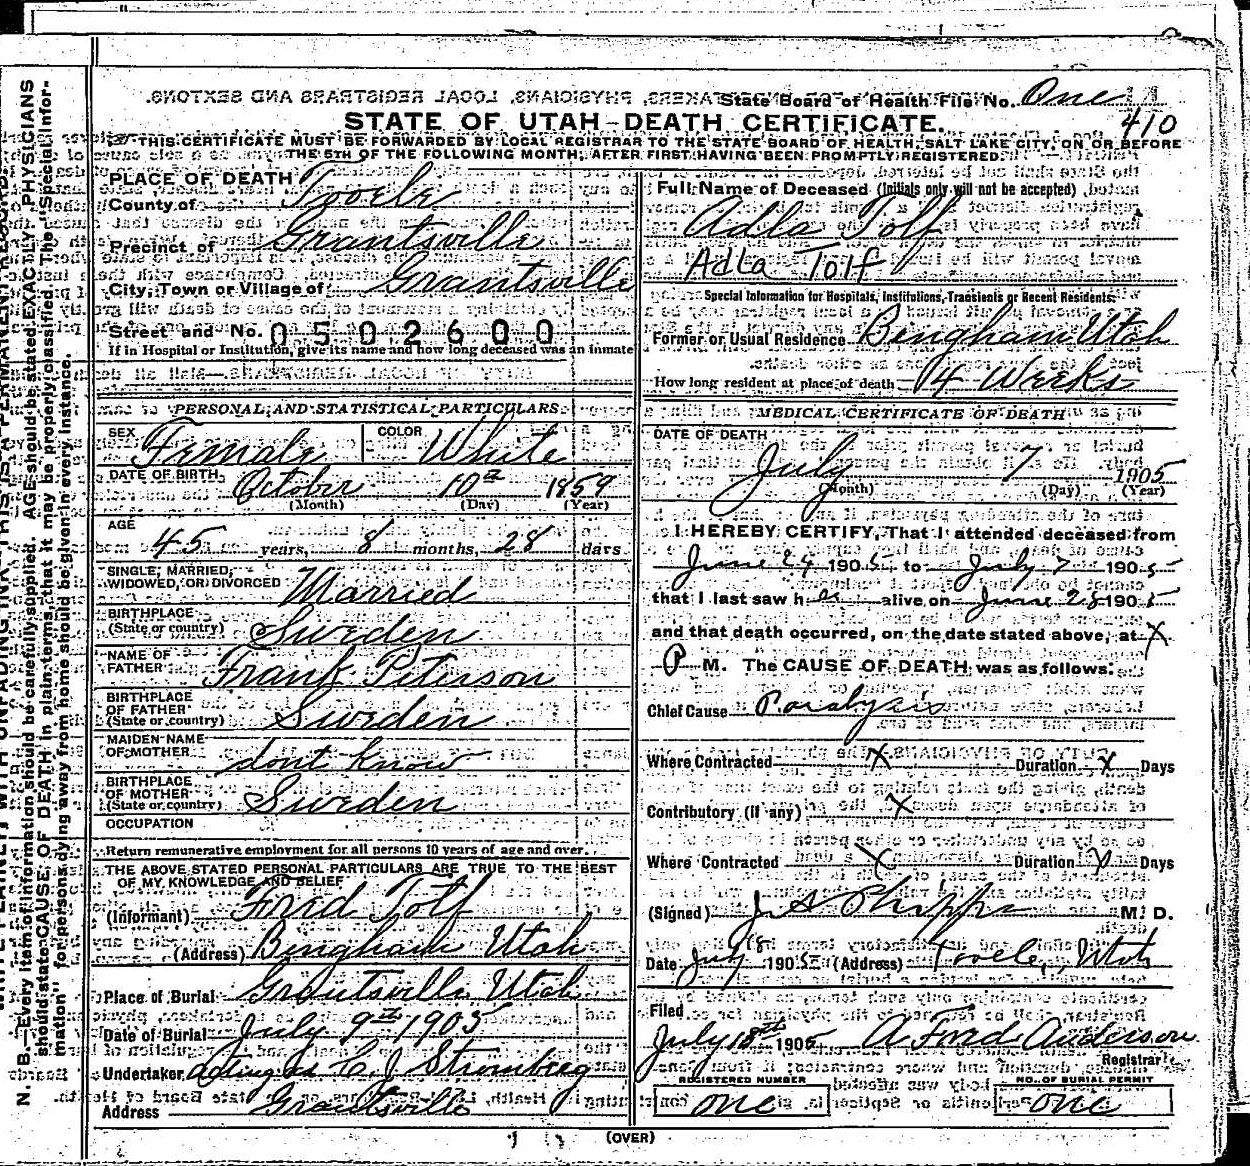 State Board of Health File No. One
410
STATE OF UTAH-DEATH CERTIFICATE.
THIS CERTIFICATE MUST BE FORWARDED BY LOCAL REGISTRAR TO THE STATE BOARD OF HEALTH, SALT LAKE CITY, ON OR BEFORE
THE 5TH OF THE FOLLOWING MONTH, AFTER FIRST HAVING BEEN PROMPTLY REGISTERED.
PLACE OF DEATH
County of Tooele
Precinct of Grantsville
City, Town or Village of Grantsville
Street and No. 0502600
If in Hospital or Institution, give its name and how long deceased was an inmate
PERSONAL AND STATISTICAL PARTICULARS
SEX Female COLOR White
DATE OF BIRTH October 10th 1859
(Month) (Day) (Year)
AGE
45 years, 8 months, 28 days
SINGLE, MARRIED,
WIDOWED, OR DIVORCED Married
BIRTHPLACE
(State or country) Sweden
NAME OF
FATHER Frank Peterson
BIRTHPLACE
OF FATHER
(State or country) Sweden
MAIDEN NAME
OF MOTHER dont know
BIRTHPLACE
OF MOTHER
(State or country) Sweden
OCCUPATION
Return remunerative employment for all persons 10 years of age and over.
THE ABOVE STATED PERSONAL PARTICULARS ARE TRUE TO THE BEST
OF MY KNOWLEDGE AND BELIEF
(Informant) Ford Tolf
(Address) Bingham Utah
Place of Burial Grantsville Utah
Date of Burial July 9th 1905
Undertaker Acting as C. J. Stromberg
Address Grantsville
Full Name of Deceased (Initials only will not be accepted)
Adla Tolf
Adla Tolf
Special Information for Hospitals, Institutions, Transients or Recent Residents.
Former or Usual Residence Bingham Utah
How long resident at place of death 4 Weeks
MEDICAL CERTIFICATE OF DEATH
DATE OF DEATH
July 7 1905
(Month) (Day) (Year)
I HEREBY CERTIFY, That I attended deceased from
June 24 1905 to July 7 1905
that I last saw her alive on June 28 1905
and that death occurred, on the date stated above, at X
P M. The CAUSE OF DEATH was as follows:
Chief Cause Paralysis
Where Contracted X Duration X Days
Contributory (if any) X
Where Contracted X Duration X Days
(Signed) J A Phipps M. D.
Date July 18 1905 (Address) Tooele, Utah
Filed
July 18th 1905 A Ford Anderson
Registrar
REGISTERED NUMBER NO. OF BURIAL PERMIT
one one
(OVER)
N. B.—Every item of information should be carefully supplied. AGE should be stated EXACTLY. PHYSICIANS
should state CAUSE OF DEATH in plain terms, that it may be properly classified. The "Special Infor-
mation" for persons dying away from home should be given in every instance.